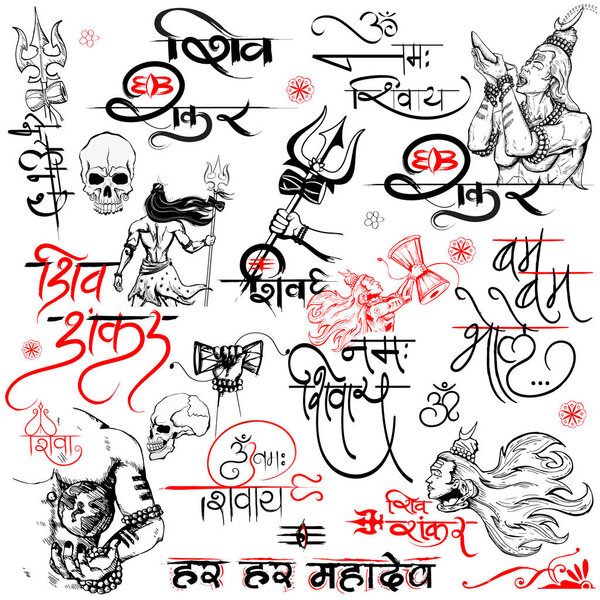 शिव
ॐ
नमः
शिवाय
शंकर
शंकर
शिव
शंकर
शिव
बम
बम
भोले...
नमः
शिवाय
ॐ
शिवा
ॐ नमः
शिवाय
शिव
शंकर
हर हर महादेव